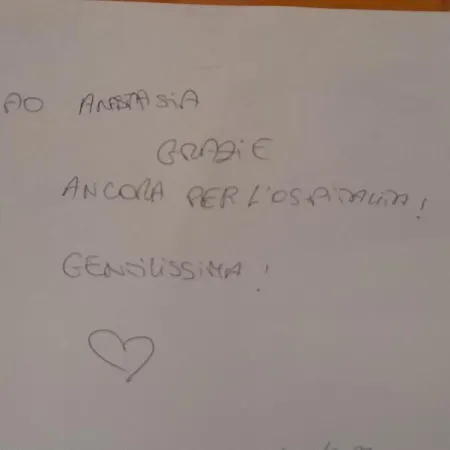 AO ANASTASIA
GRAZIE
ANCORA PER L'OSPITALITA!
GENTILISSIMA!